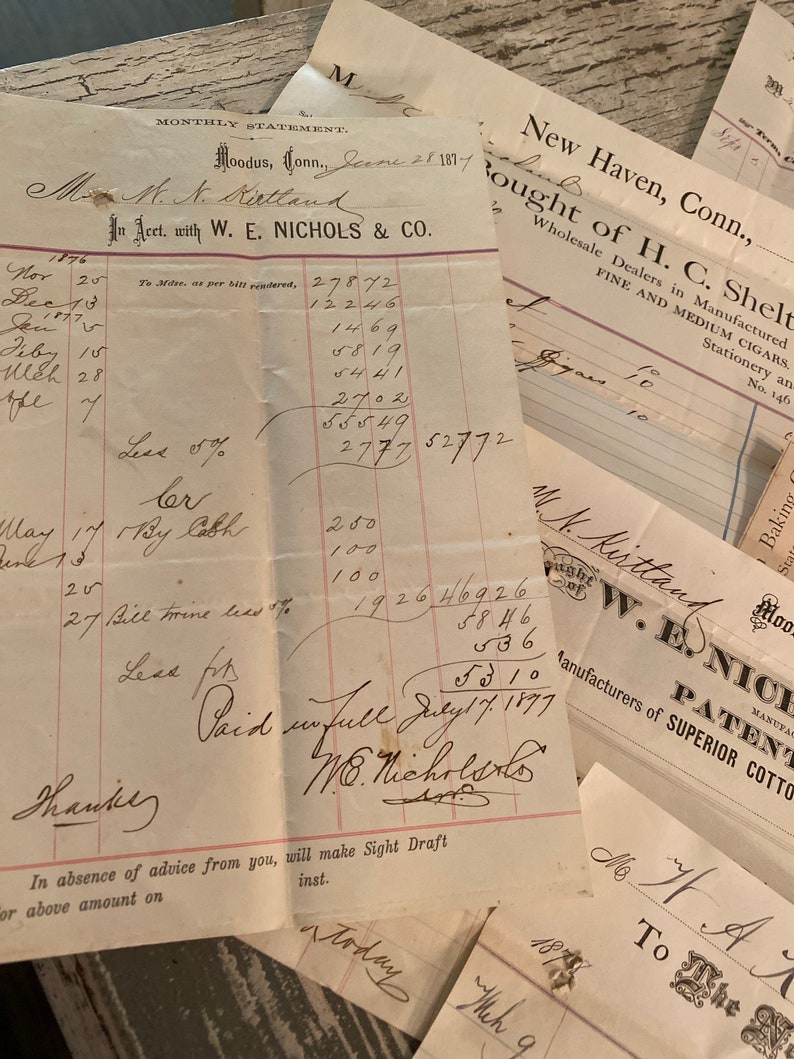 MONTHLY STATEMENT.
Moodus, Conn., June 28 1877
M W. N. Kirtland
In Acct. with W. E. NICHOLS & CO.
1876
Nov 25 To Mdse. as per bill rendered, 278 72
Dec 13 122 46
1877
Jan 5 14 69
Feby 15 58 19
Mch 28 54 41
Apl 7 27 02
555 49
Less 5% 27 77 527 72
Cr
May 17 By Cash 250
June 13 100
25 100
27 Bill twine less 5% 19 26 469 26
58 46
Less frt 5 36
53 10
Paid in full July 17. 1877
W. E. Nichols & Co
Thanks
In absence of advice from you, will make Sight Draft
for above amount on inst.
today
M
New Haven, Conn.,
Bought of H. C. Shelt
Wholesale Dealers in Manufactured
FINE AND MEDIUM CIGARS.
Stationery an
No. 146
10
10
Terms C
Sept 5
Baking
W. N. Kirtland
Moo
ought of W. E. NICH
MANUFAC
PATENT
Manufacturers of SUPERIOR COTTO
M W A K
To The
1878
Mch 9